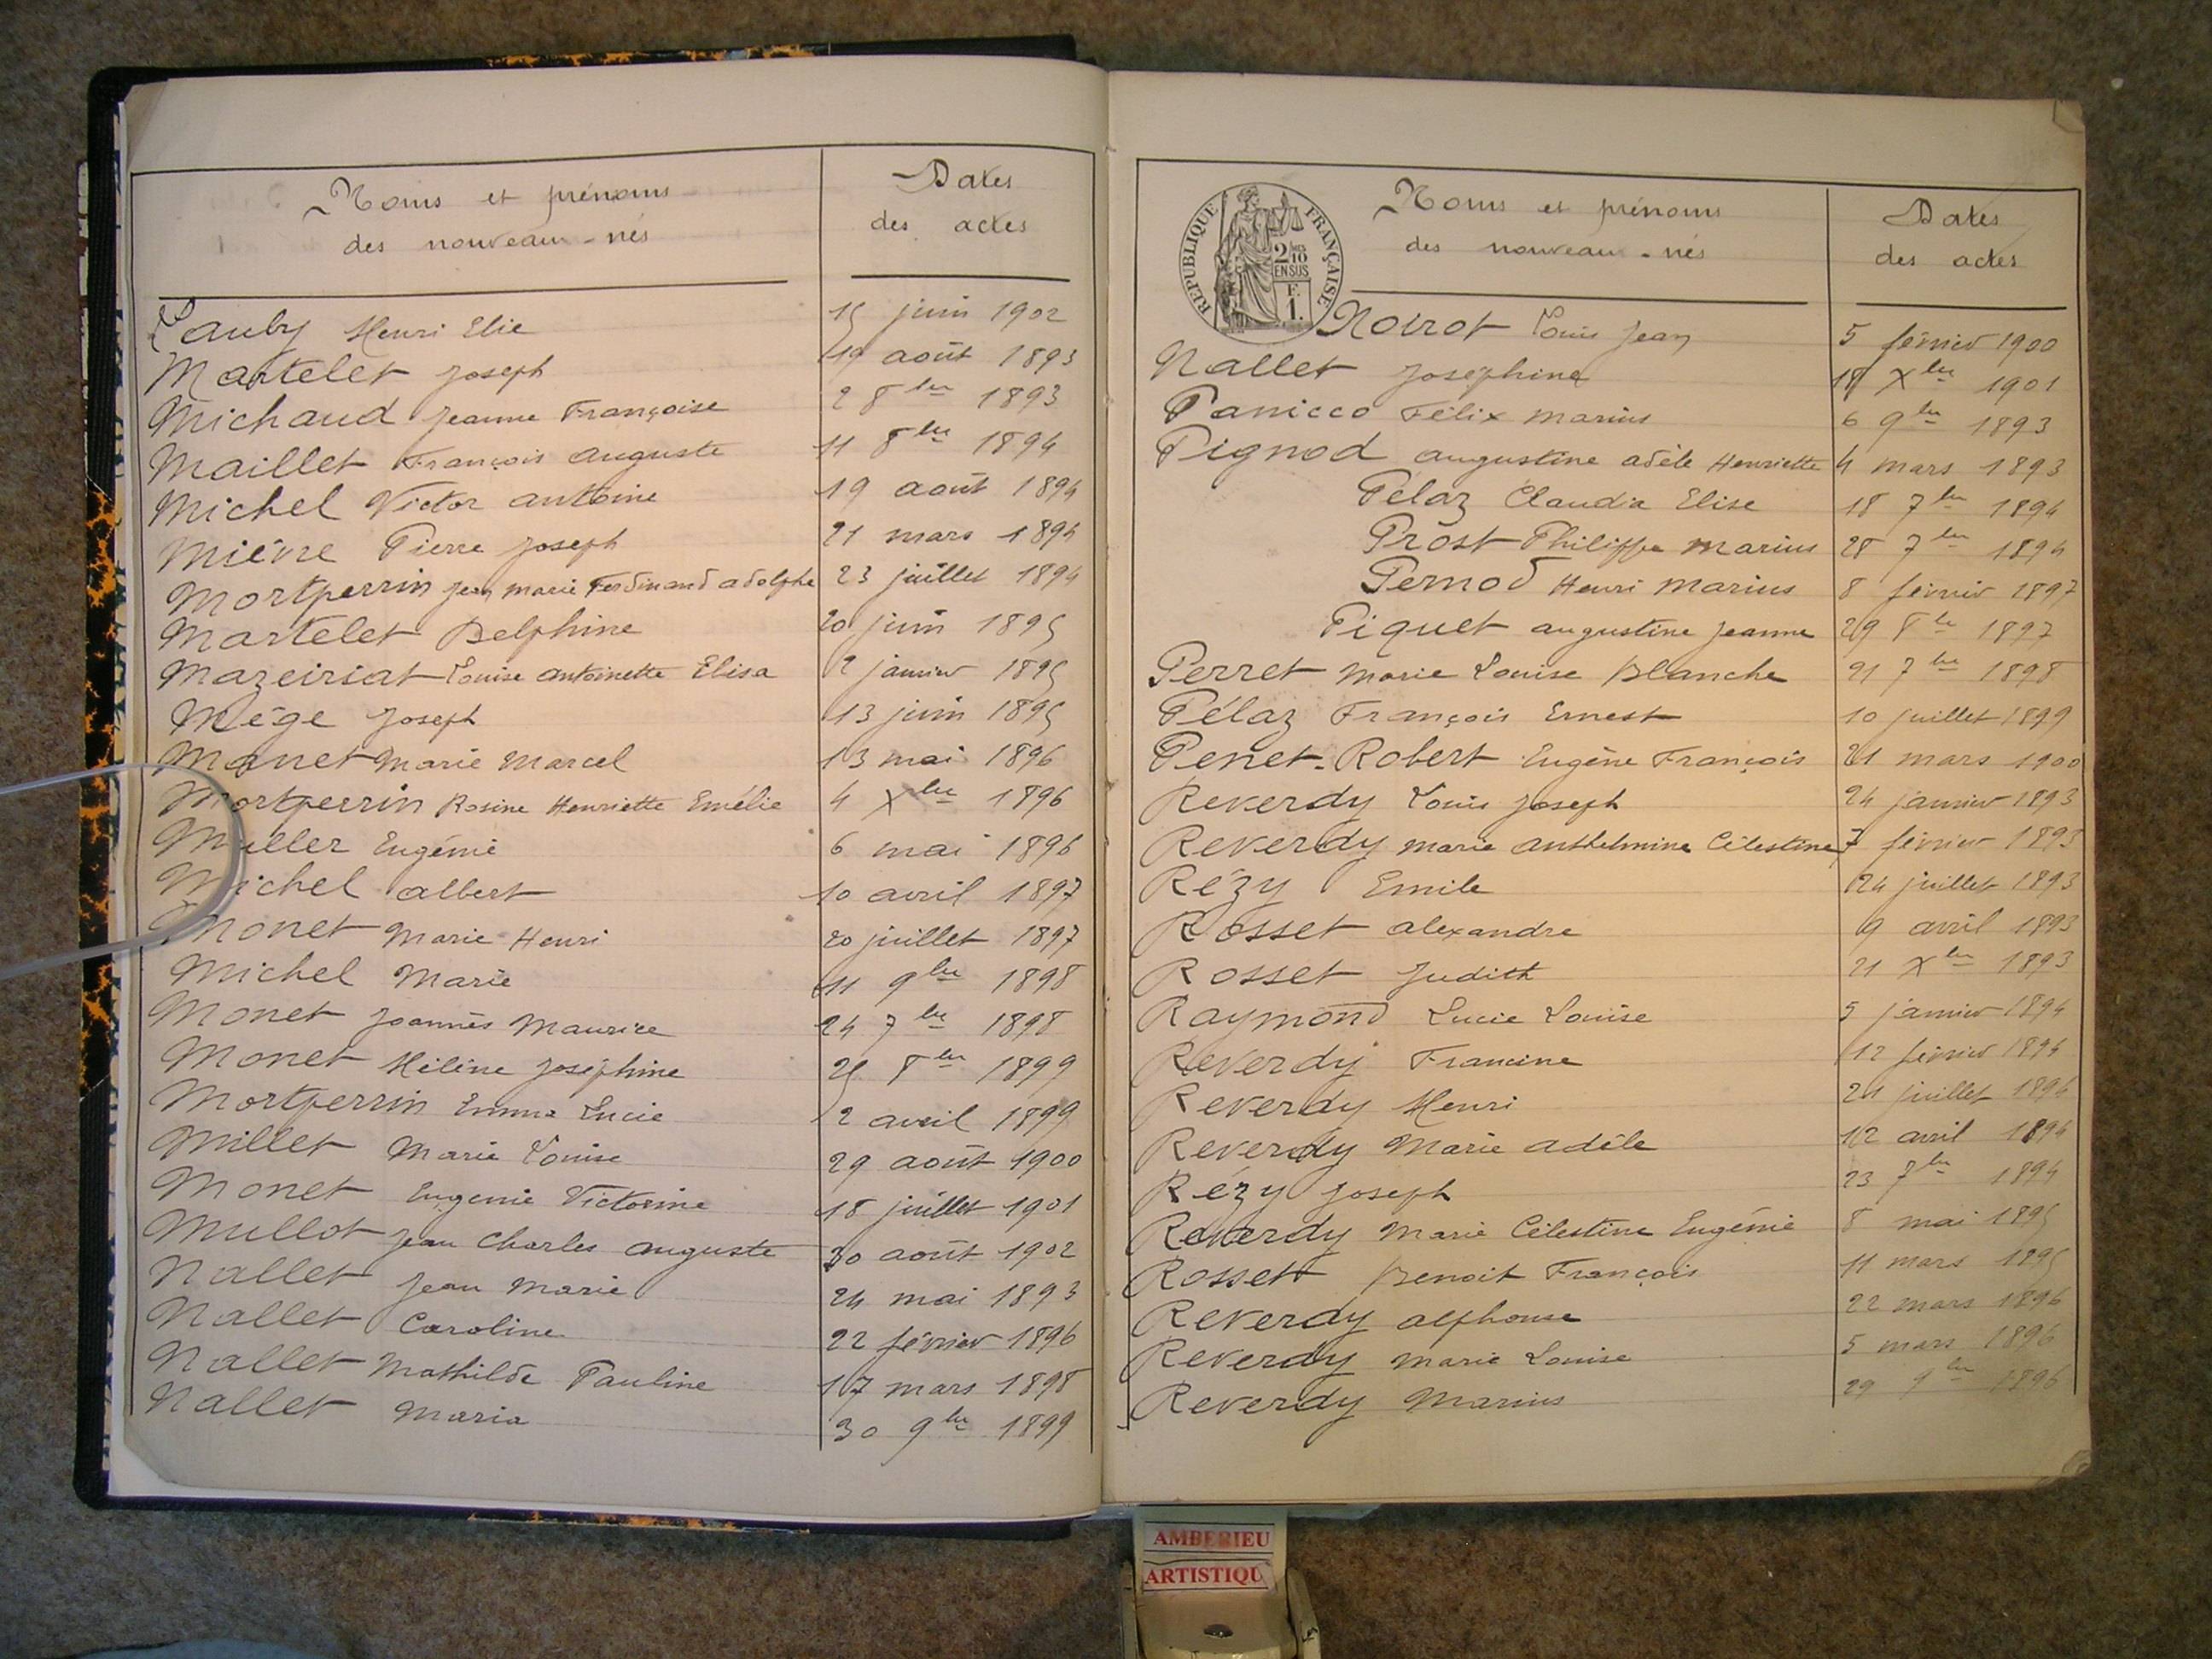 Noms et prénoms
des nouveau-nés
Dates
des actes
Lauby Henri Elie 15 juin 1902
Martelet Joseph 19 août 1893
Michaud Jeanne Françoise 2 8bre 1893
Maillet François Auguste 11 8bre 1894
Michel Victor Antoine 19 août 1894
Mièvre Pierre Joseph 21 mars 1894
Mortperrin Jean Marie Ferdinand Adolphe 23 juillet 1894
Martelet Delphine 20 juin 1895
Mazeiriat Louise Antoinette Elisa 2 janvier 1895
Mège Joseph 13 juin 1895
Monet Marie Marcel 13 mai 1896
Mortperrin Rosine Henriette Emélie 4 Xbre 1896
Muller Eugénie 6 mai 1896
Michel Albert 10 avril 1897
Monet Marie Henri 20 juillet 1897
Michel Marie 11 9bre 1898
Monet Joannès Maurice 24 7bre 1898
Monet Hélène Joséphine 25 8bre 1899
Mortperrin Emma Lucie 2 avril 1899
Millet Marie Louise 29 août 1900
Monet Eugenie Victorine 18 juillet 1901
Mullot Jean Charles Auguste 30 août 1902
Nallet Jean Marie 24 mai 1893
Nallet Caroline 22 février 1896
Nallet Mathilde Pauline 17 mars 1898
Nallet Maria 30 9bre 1899
REPUBLIQUE FRANÇAISE
2/10
EN SUS
F.
1.
Noms et prénoms
des nouveau-nés
Dates
des actes
Noirot Louis Jean 5 février 1900
Nallet Joséphine 18 Xbre 1901
Panicco Félix Marius 6 9bre 1893
Pignod Augustine Adèle Henriette 4 mars 1893
Pelaz Claudia Elise 18 7bre 1894
Prost Philippe Marius 28 7bre 1894
Pernod Henri Marius 8 février 1897
Piquet Augustine Jeanne 29 8bre 1897
Perret Marie Louise Blanche 21 7bre 1898
Pélaz François Ernest 10 juillet 1899
Penet-Robert Eugène François 21 mars 1900
Reverdy Louis Joseph 24 janvier 1893
Reverdy Marie Anthelmine Célestine 7 février 1893
Rézy Emile 24 juillet 1893
Rosset Alexandre 9 avril 1893
Rosset Judith 21 Xbre 1893
Raymond Lucie Louise 5 janvier 1894
Reverdy Francine 12 février 1894
Reverdy Henri 21 juillet 1894
Reverdy Marie Adèle 12 avril 1894
Rézy Joseph 23 7bre 1894
Reverdy Marie Célestine Eugénie 8 mai 1895
Rosset Benoit François 11 mars 1895
Reverdy Alphonse 22 mars 1896
Reverdy Marie Louise 5 mars 1896
Reverdy Marius 29 9bre 1896
AMBERIEU
ARTISTIQU